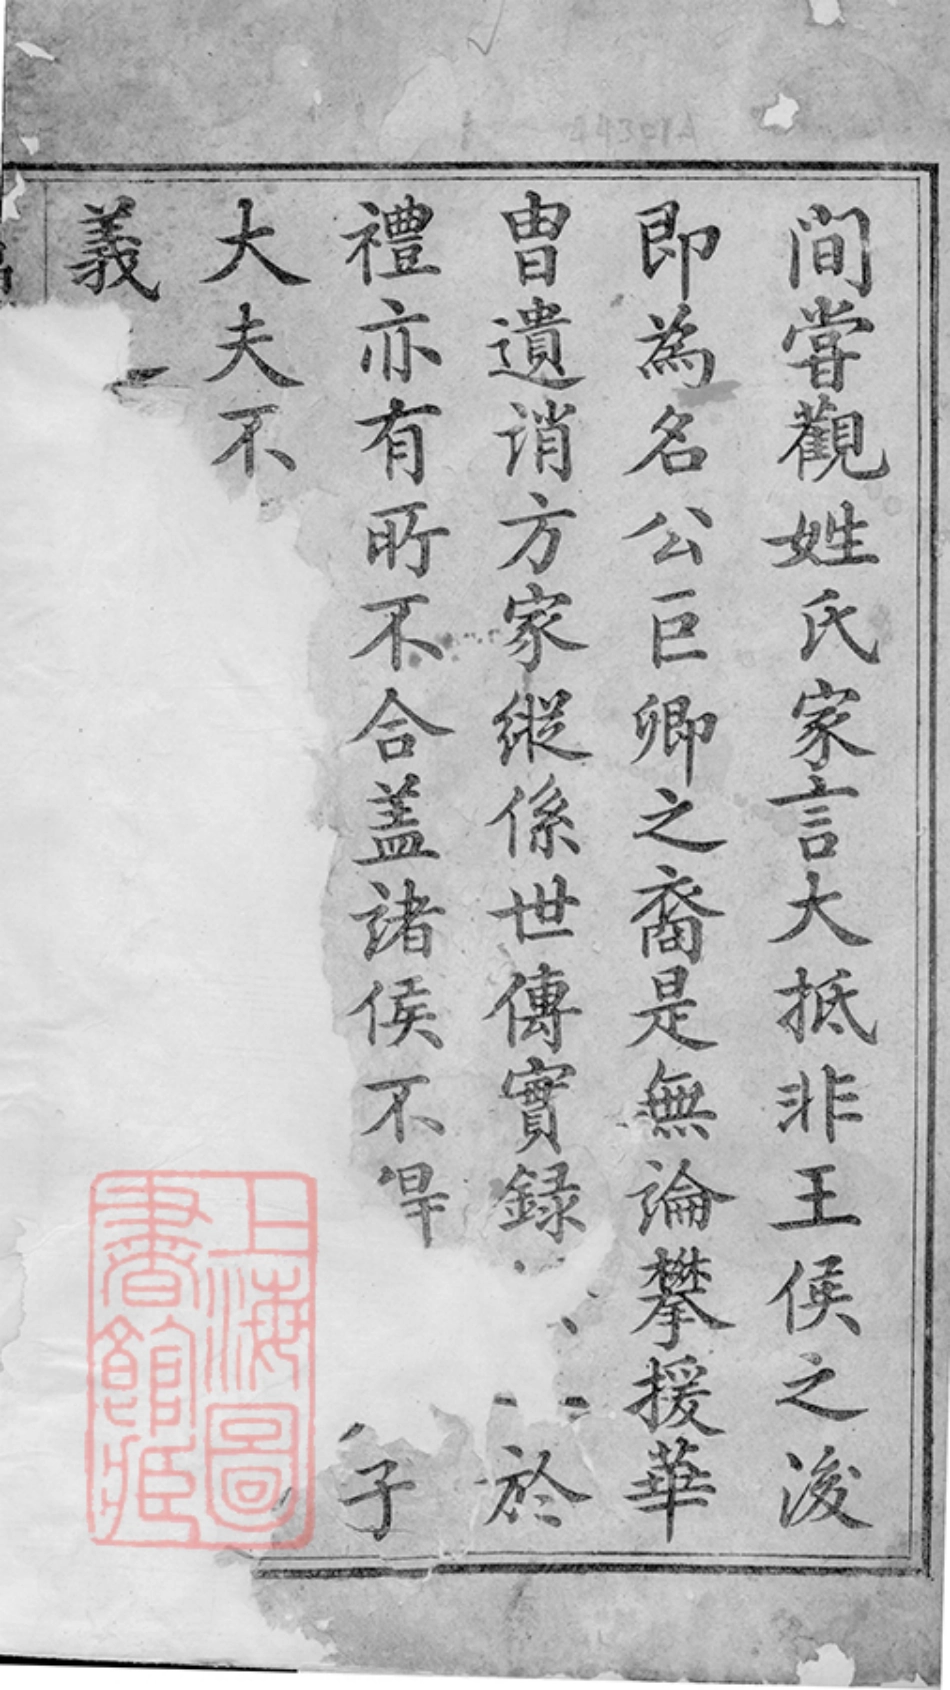 间嘗觀姓氏家言大抵非王侯之浚
即為名公巨卿之裔是無論攀援華
胄遺誚方家縱係世傳實録於
禮亦有所不合盖諸侯不得子
大夫不
義
上海圖
書館藏